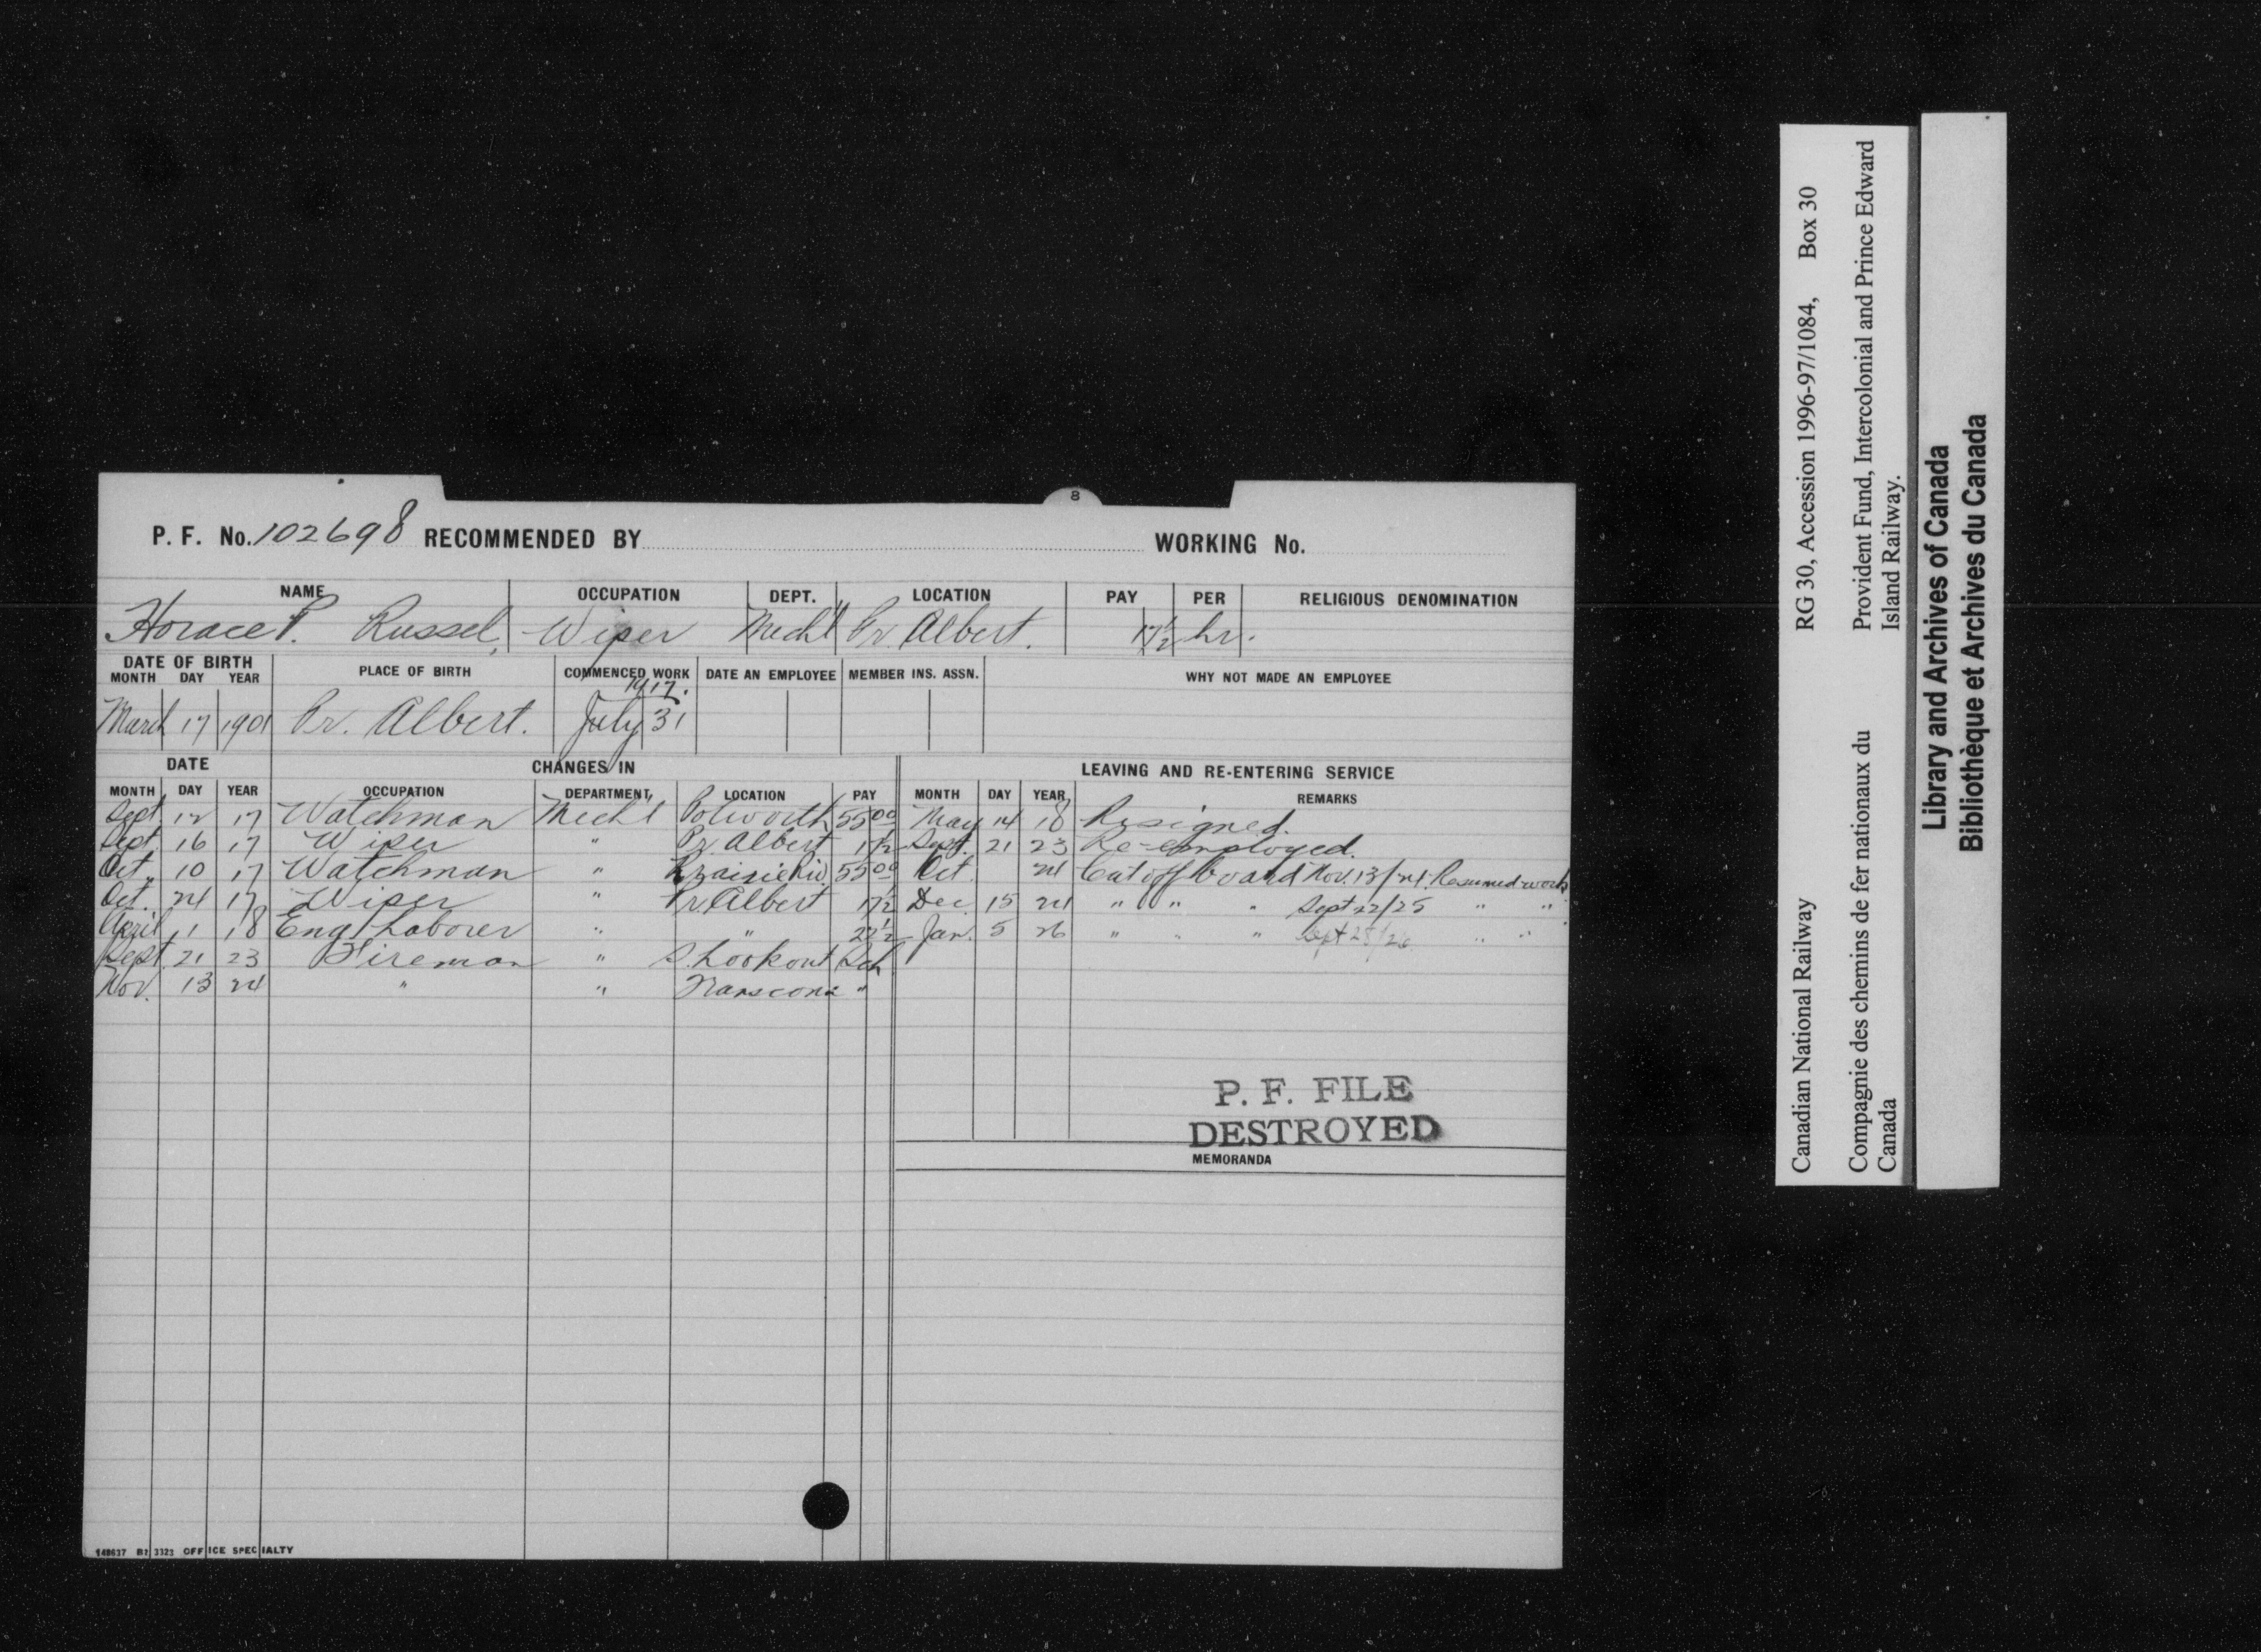 8
P. F. No. 102698 RECOMMENDED BY WORKING No.
NAME OCCUPATION DEPT. LOCATION PAY PER RELIGIOUS DENOMINATION
Horace P. Russel, Wiper Mechl Pr. Albert. 17½ hr.
DATE OF BIRTH PLACE OF BIRTH COMMENCED WORK DATE AN EMPLOYEE MEMBER INS. ASSN. WHY NOT MADE AN EMPLOYEE
MONTH DAY YEAR
1917.
March 17 1901 Pr. Albert. July 31
DATE CHANGES IN LEAVING AND RE-ENTERING SERVICE
MONTH DAY YEAR OCCUPATION DEPARTMENT LOCATION PAY MONTH DAY YEAR REMARKS
Sept. 12 17 Watchman Mechl Polworth 55 00 May 14 18 Resigned.
Sept. 16 17 Wiper " Pr Albert 17½ Sept. 21 23 Re-employed.
Oct. 10 17 Watchman " Prairie Riv. 55 00 Oct. 24 Cut off board Nov. 13/24. Resumed work
Oct. 24 17 Wiper " Pr Albert 17½ Dec. 15 24 " " " Sept 22/25 " "
April 1 18 Eng. Laborer " " 22½ Jan. 5 26 " " " Sept 25/26 " "
Sept. 21 23 Fireman " S. Lookout Sch
Nov. 13 24 " " Transcona "
P. F. FILE
DESTROYED
MEMORANDA
148637 B1 3323 OFFICE SPECIALTY
Canadian National Railway RG 30, Accession 1996-97/1084, Box 30
Compagnie des chemins de fer nationaux du Canada
Provident Fund, Intercolonial and Prince Edward Island Railway.
Library and Archives of Canada
Bibliothèque et Archives du Canada